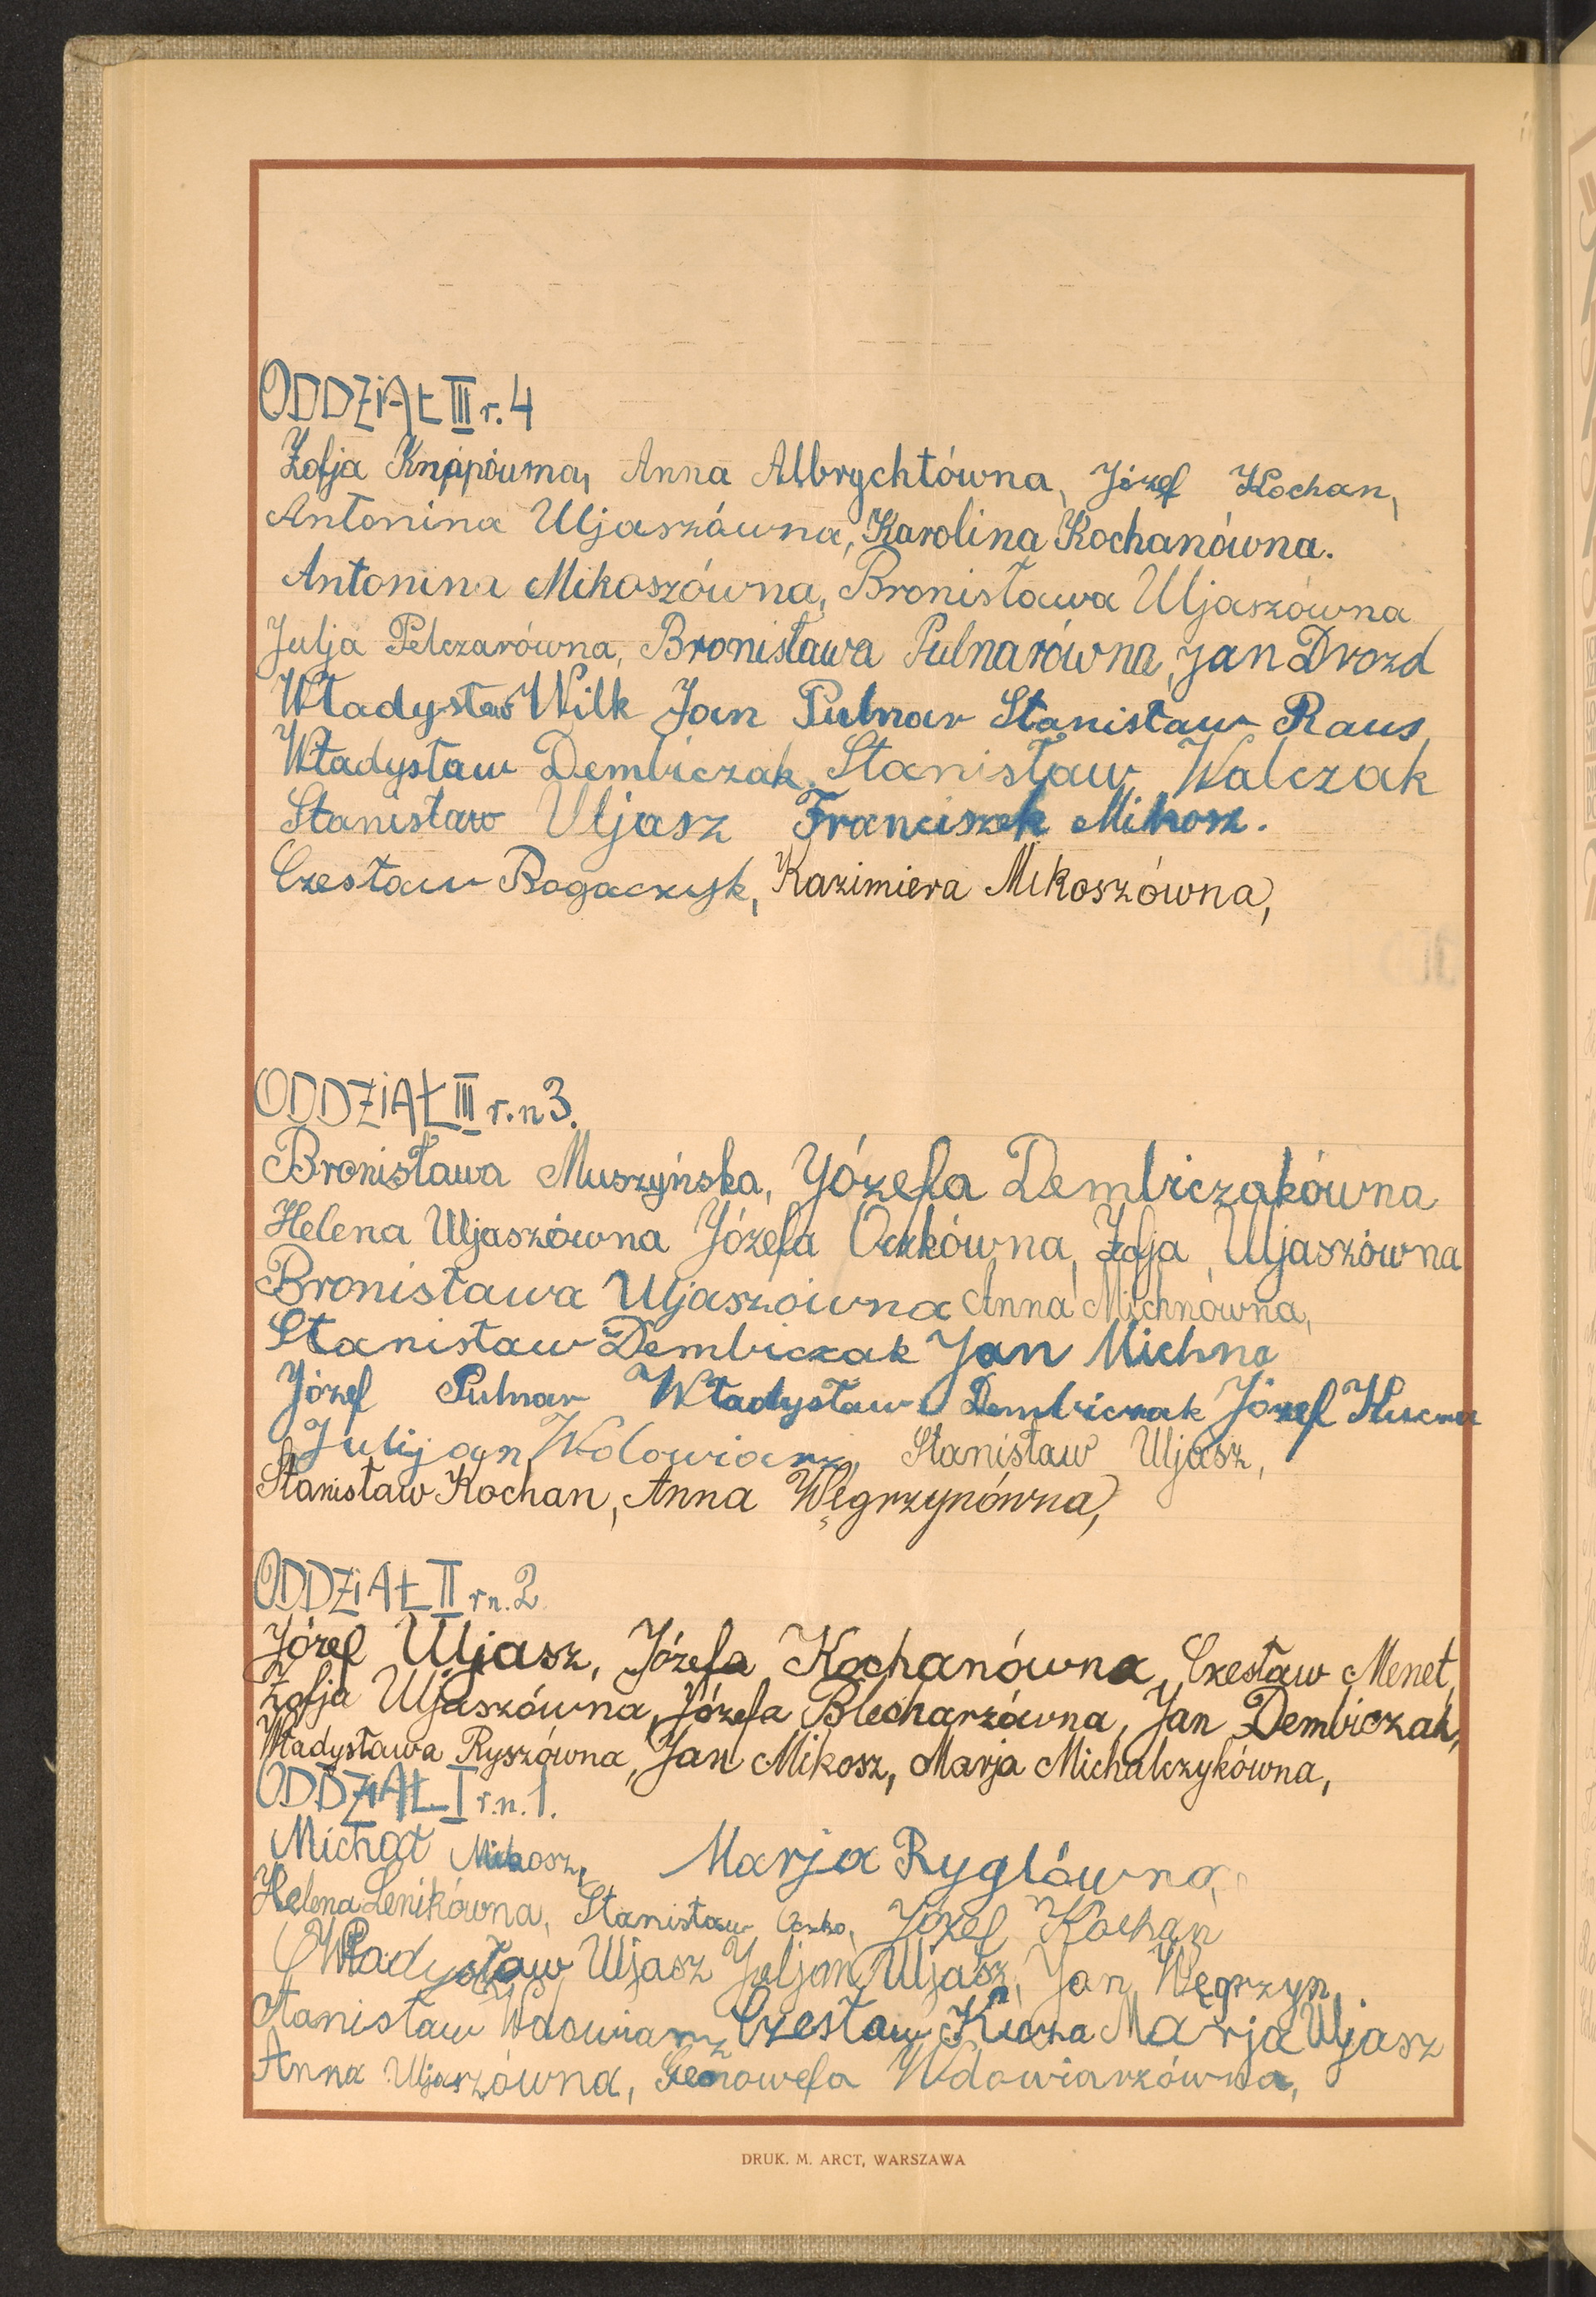 ODDZiAŁ III r. 4
Zofja Knapówna, Anna Albrychtówna, Józef Kochan,
Antonina Uljaszówna, Karolina Kochanówna.
Antonina Mikoszówna, Bronisława Uljaszówna
Julja Pelczarówna, Bronisława Pulnarówna, Jan Drozd
Władysław Wilk Jan Pulnar Stanisław Raus,
Władysław Dembiczak, Stanisław Walczak
Stanisław Uljasz Franciszek Mikosz.
Czesław Rogaczyk, Kazimiera Mikoszówna,
ODDZiAŁ III r. n 3.
Bronisława Muszyńska, Józefa Dembiczakówna
Helena Uljaszówna Józefa Oczkówna, Zofja Uljaszówna
Bronisława Uljaszówna Anna Michnówna,
Stanisław Dembiczak Jan Michna
Józef Pulnar Władysław Dembiczak Józef Kucza
Julijan Wdowiarz, Stanisław Uljasz,
Stanisław Kochan, Anna Węgrzynówna,
ODDZiAŁ II r n. 2
Józef Uljasz, Józefa Kochanówna, Czesław Menet,
Zofja Uljaszówna, Józefa Blecharzówna, Jan Dembiczak,
Władysława Ryszówna, Jan Mikosz, Marja Michalczykówna,
ODDZiAŁ I r. n. 1.
Michał Mikosz, Marja Ryglówna,
Helena Lenikówna, Stanisław Oczko, Józef Kochan
Władysław Uljasz Juljan Uljasz, Jan Węgrzyn,
Stanisław Wdowiarz Czesław Kucza Marja Uljasz
Anna Uljaszówna, Genowefa Wdowiarzówna,
DRUK. M. ARCT, WARSZAWA